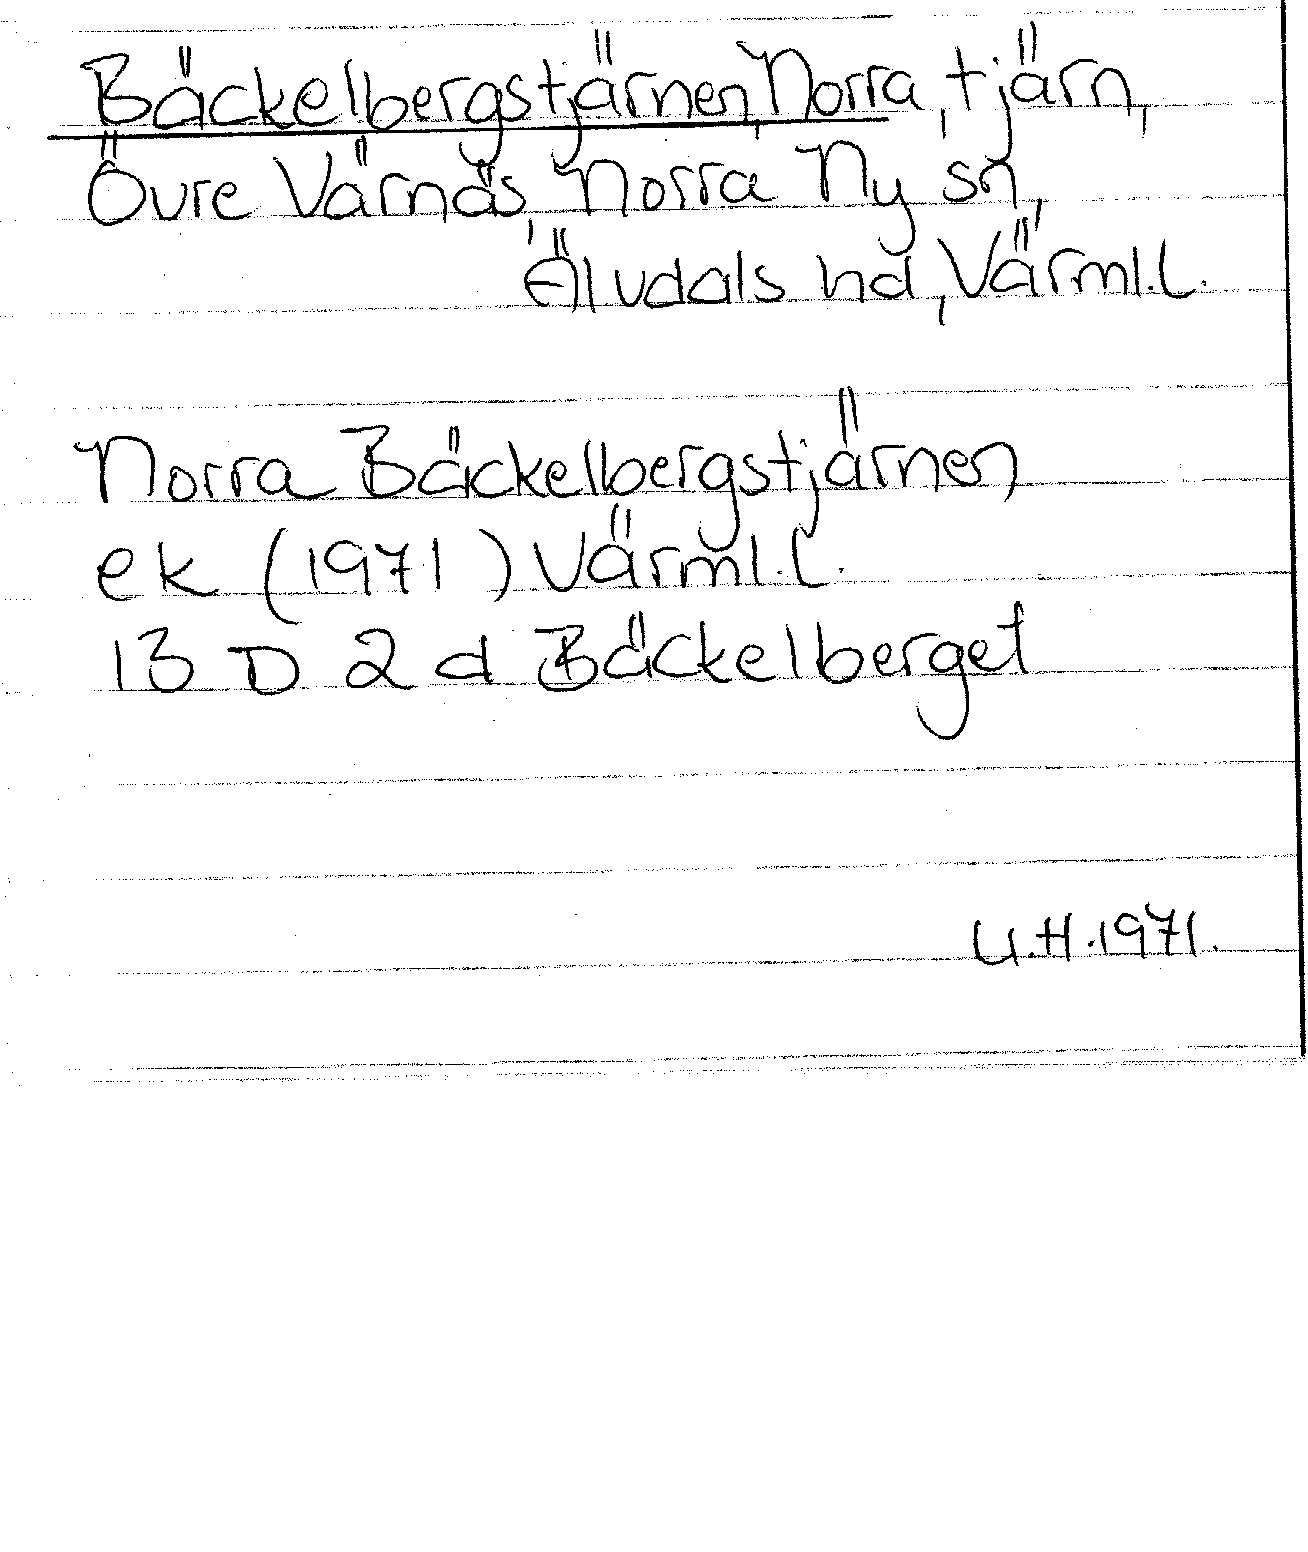 Bäckelbergstjärnen, Norra, tjärn,
Övre Värnäs, Norra Ny sn,
Älvdals hd, Värml. l.
Norra Bäckelbergstjärnen
ek (1971) Värml. l.
13 D 2 d Bäckelberget
U.H. 1971.